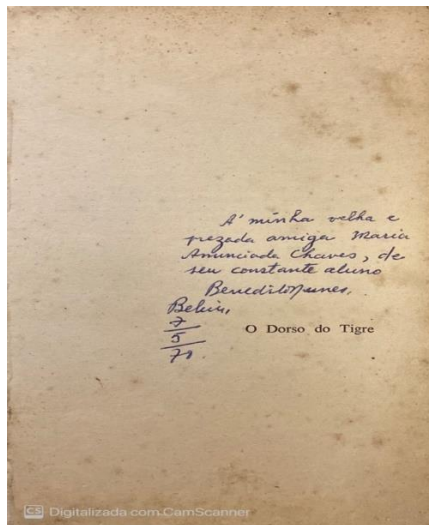 A' minha velha e
prezada amiga Maria
Anunciada Chaves, de
seu constante aluno
Benedito Nunes.
Belém,
7
5
70.
O Dorso do Tigre
CS Digitalizada com CamScanner